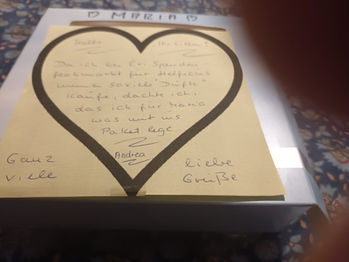 MARIA
Hallo Ihr Lieben!
Da ich bei Spenden
flohmarkt für
immer soviel "Düfte"
kaufe, dachte ich,
das ich für Maria
was mit ins
Paket lege
Andrea
Ganz liebe
viele Grüße